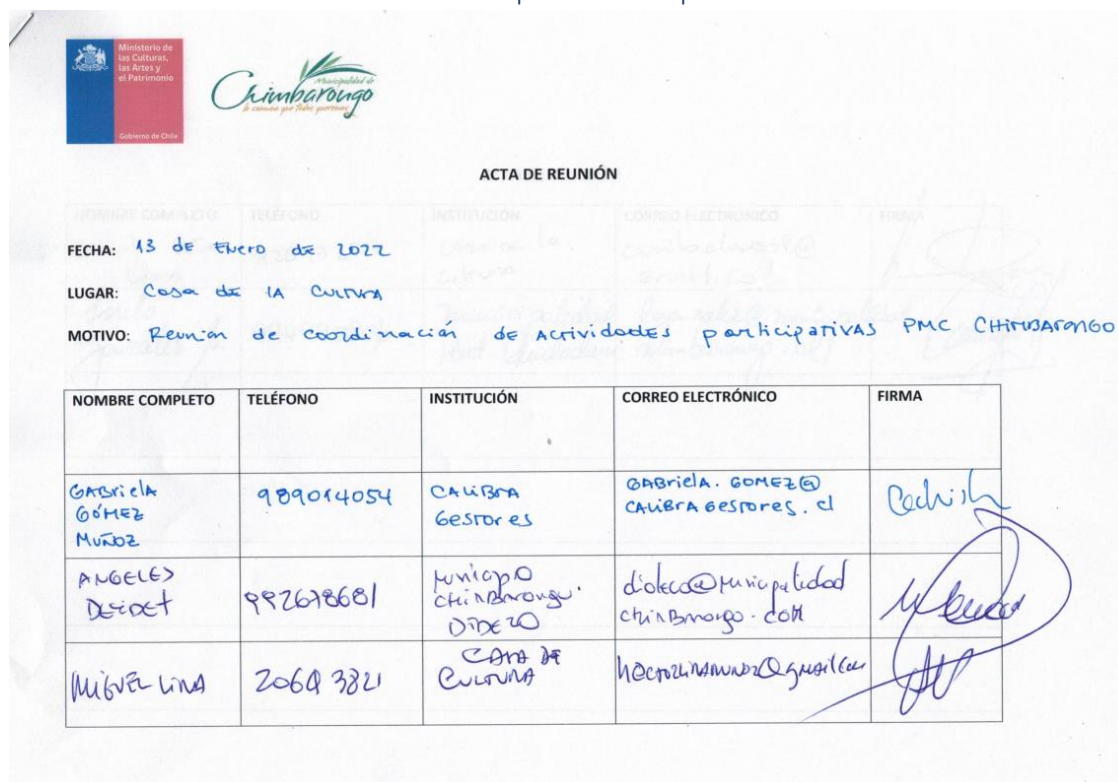 Ministerio de
las Culturas,
las Artes y
el Patrimonio
Gobierno de Chile
Municipalidad de
Chimbarongo
ACTA DE REUNIÓN
FECHA: 13 de Enero de 2022
LUGAR: Casa de la Cultura
MOTIVO: Reunión de coordinación de actividades participativas PMC CHIMBARONGO
NOMBRE COMPLETO TELÉFONO INSTITUCIÓN CORREO ELECTRÓNICO FIRMA
GABriela 989014054 CALIBRA GABriela.GOMEZ@
GÓMEZ Gestores CALIBRAGestores.cl
MUÑOZ
ANGELES 992678681 Municipio
Chimbarongo
chimbarongo.com
MIGUEL LIRA CASA DE
CULTURA